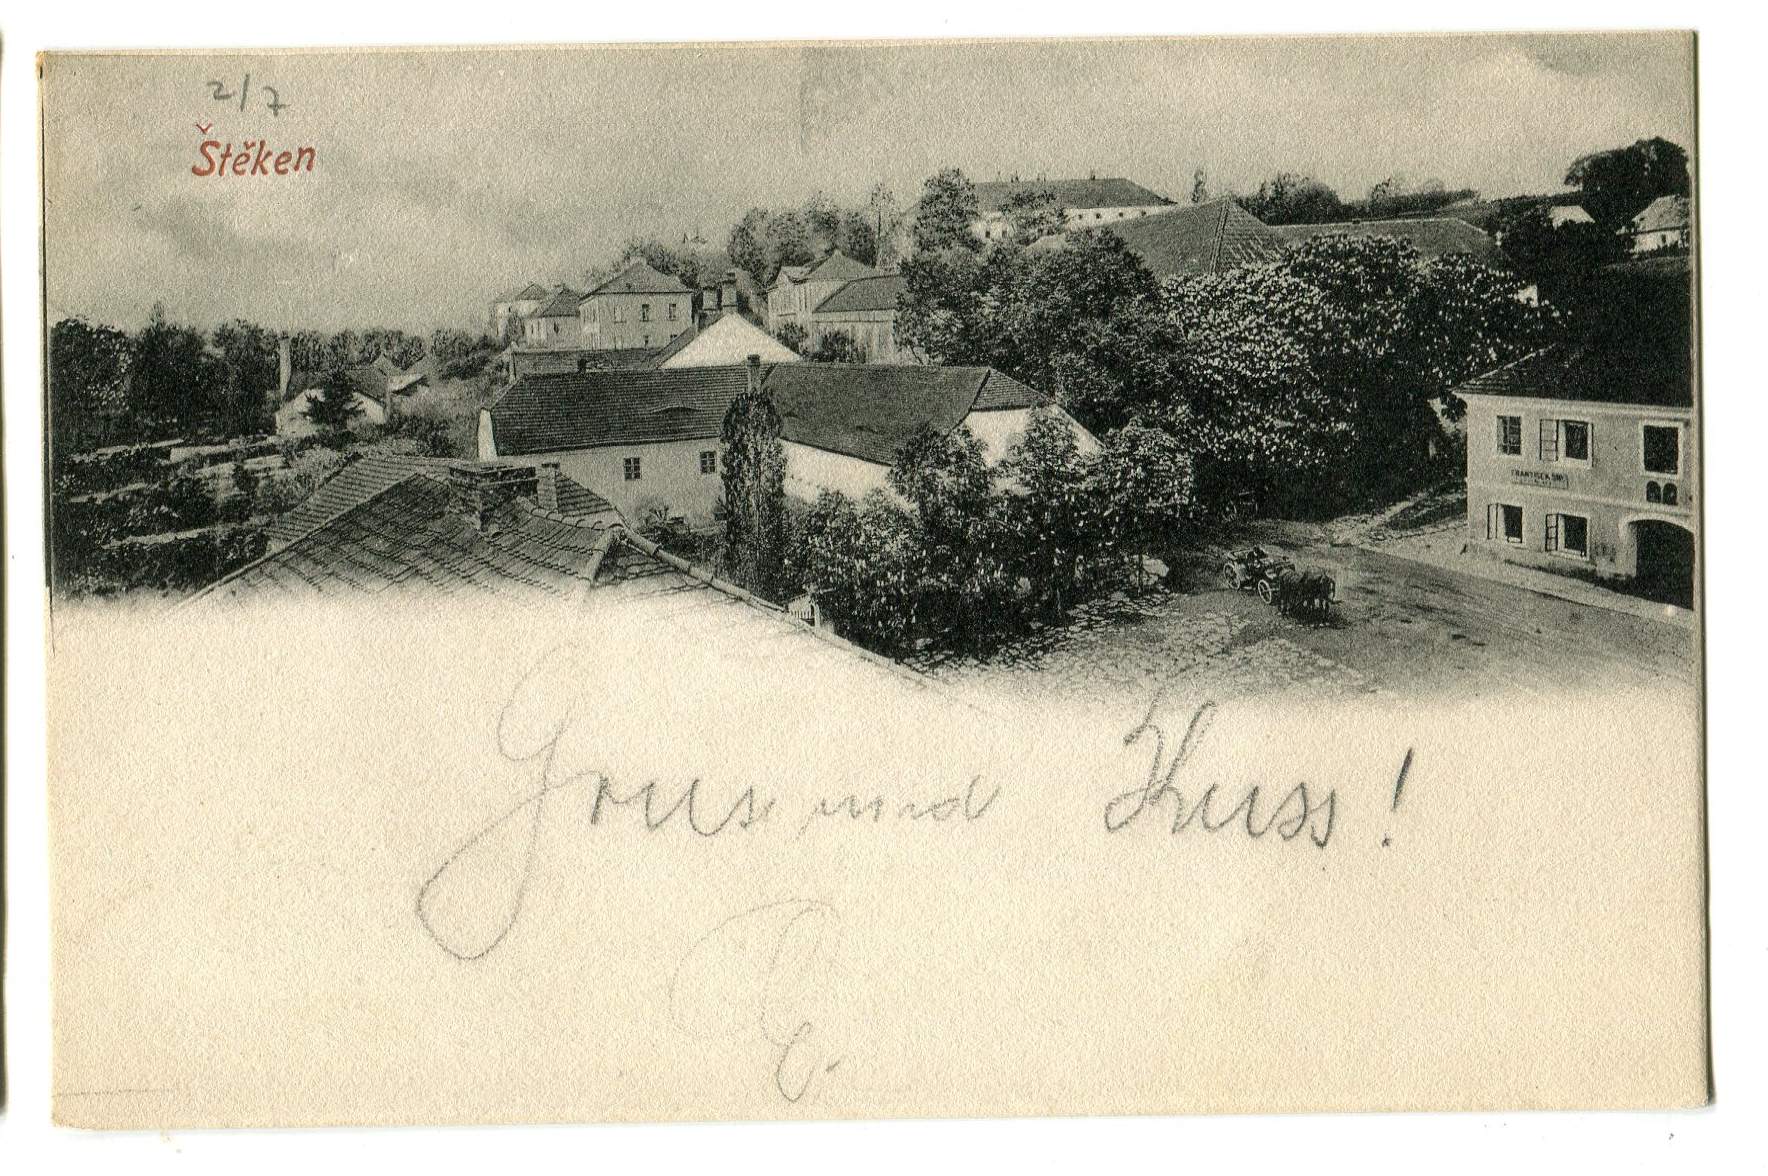 2/7
Štěken
FRANTIŠEK
Grus und Kuss!